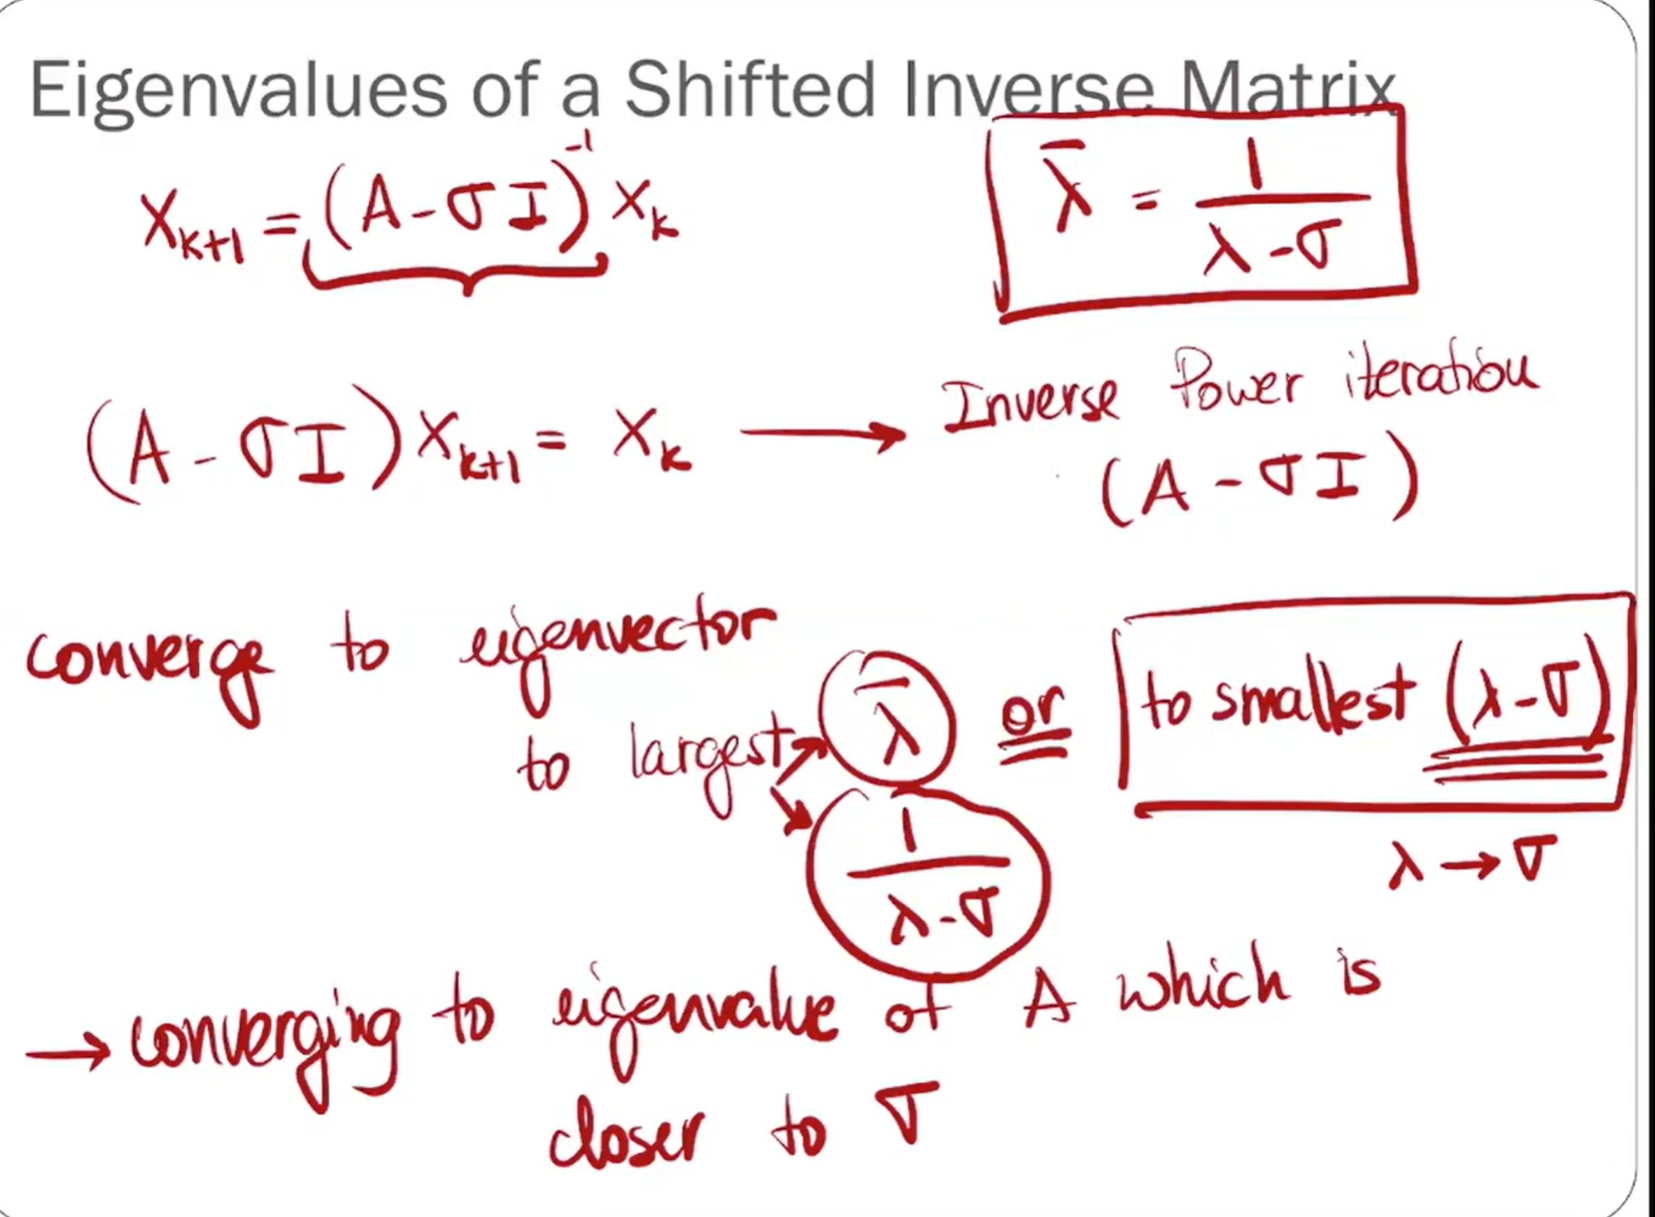 Eigenvalues of a Shifted Inverse Matrix
x_{k+1} = (A - σI)^{-1} x_k
λ̄ = 1/(λ - σ)
(A - σI) x_{k+1} = x_k → Inverse Power iteration
(A - σI)
converge to eigenvector
to largest λ̄ or to smallest (λ - σ)
1/(λ - σ)
λ → σ
→ converging to eigenvalue of A which is
closer to σ